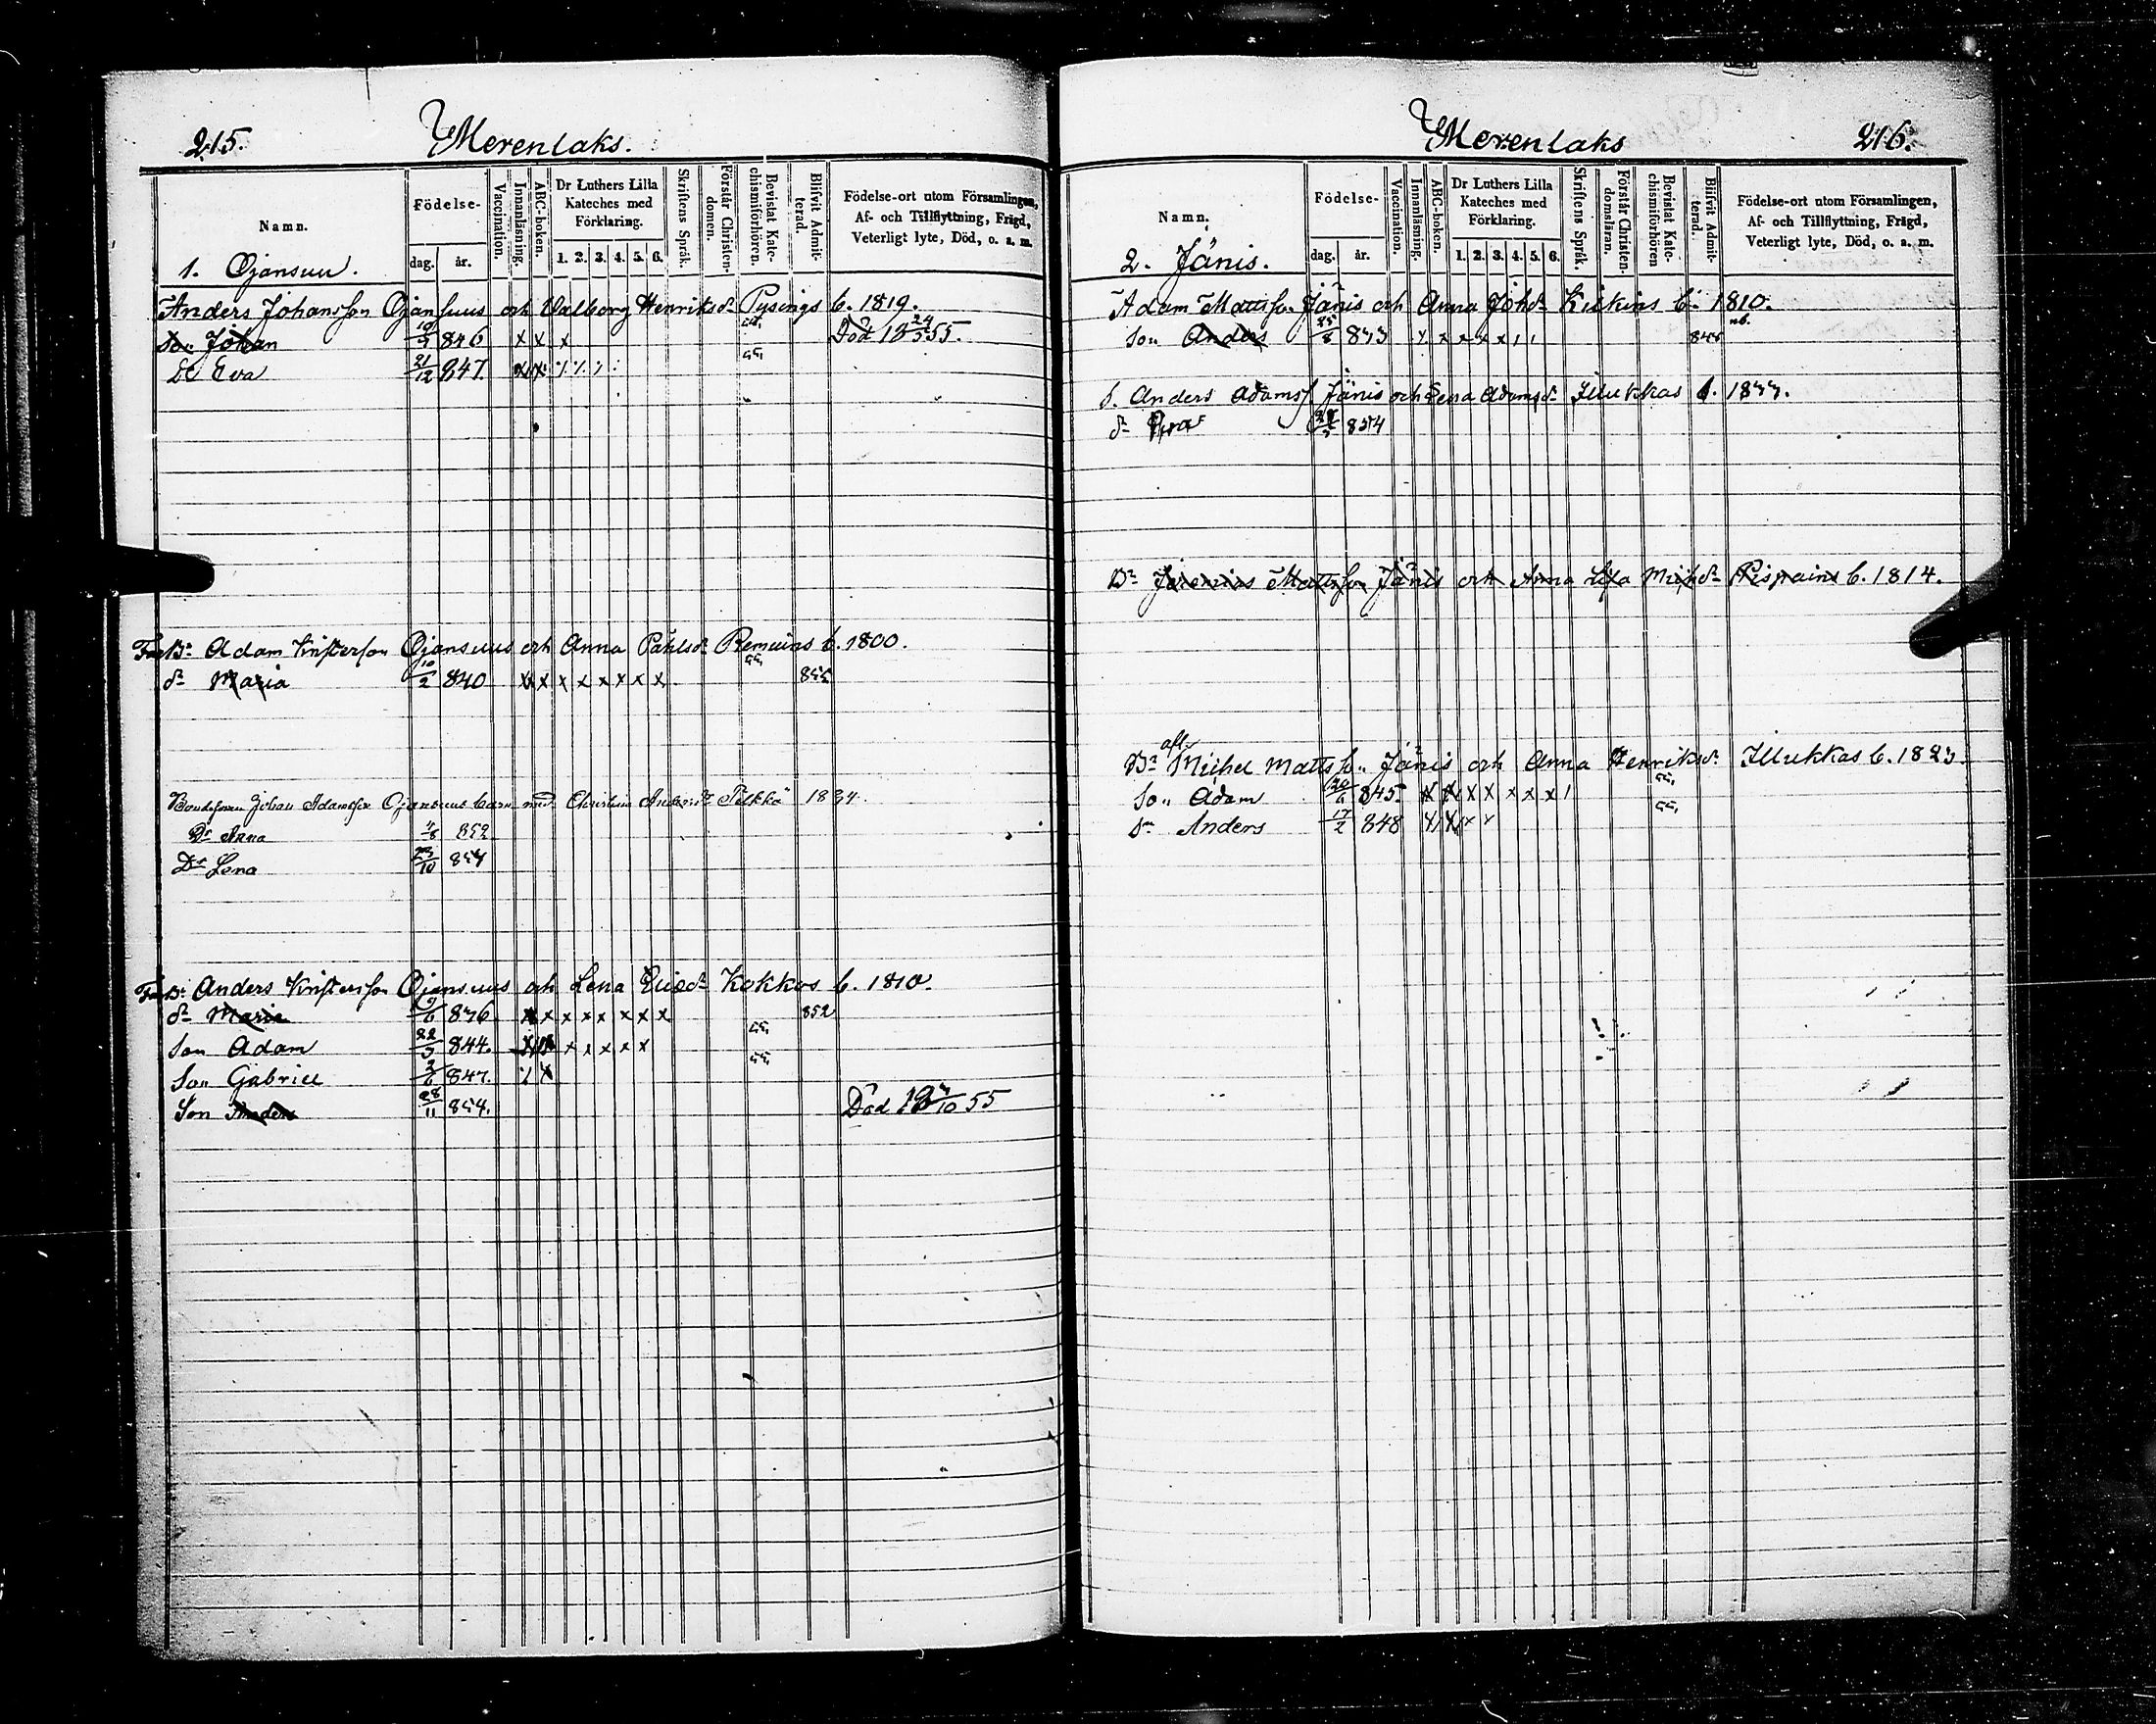 215.
Merenlaks.
Namn.
Födelse-
dag. år.
Vaccination.
Innanläsning.
ABC-boken.
Dr Luthers Lilla Kateches med Förklaring.
1. 2. 3. 4. 5. 6.
Skriftens Språk.
Förstår Christendomen.
Bevistat Katechismiförhören.
Blifvit Admitterad.
Födelse-ort utom Församlingen,
Af- och Tillflyttning, Frägd,
Veterligt lyte, Död, o. a. m.
1. Ojansuu.
Anders Johansson Ojansuus och Valborg Henriksdr Pysings b. 1819.
Son Johan 846 x x x Död 55.
Dr Eva 21/12 847.
Farbr Adam Ojansuus och Anna Påhlsdr Remuins b. 1800.
dr Maria 10/2 840 x x x x x x x x 855
Bondesonen Johan Adamsson Ojansuus barn med Christina Andersdr Pilkkä 1834
Dr Anna 4/8 852
Dr Lena 23/10 854
Farbr Anders Ojansuus och Lena Ericsdr Kokkos b. 1810.
dr Maria 836 x x x x x x x x 852
Son Adam 22/3 844. x x x x x
Son Gabriel 847.
Son Anders 28/11 854. Död 10 55
Merenlaks
216.
Namn.
Födelse-
dag. år.
Vaccination.
Innanläsning.
ABC-boken.
Dr Luthers Lilla Kateches med Förklaring.
1. 2. 3. 4. 5. 6.
Skriftens Språk.
Förstår Christendomsläran.
Bevistat Katechismiförhören
Blifvit Admitterad.
Födelse-ort utom Församlingen,
Af- och Tillflyttning, Frägd,
Veterligt lyte, Död, o. a. m.
2. Jänis.
Adam Mattsson Jänis och Anna Johdr Kiskins b. 1810.
Son Anders 833
S. Anders Adamss Jänis och Lena Adamsdr Illukkas b. 1833.
dr 854
Br Jeremias Mattsson Jänis och Anna Lisa Michdr b. 1814.
afl.
Br Michel Mattsson Jänis och Anna Henriksdr Illukkas b. 1823.
Son Adam 20/6 845.
Sn Anders 17/2 848